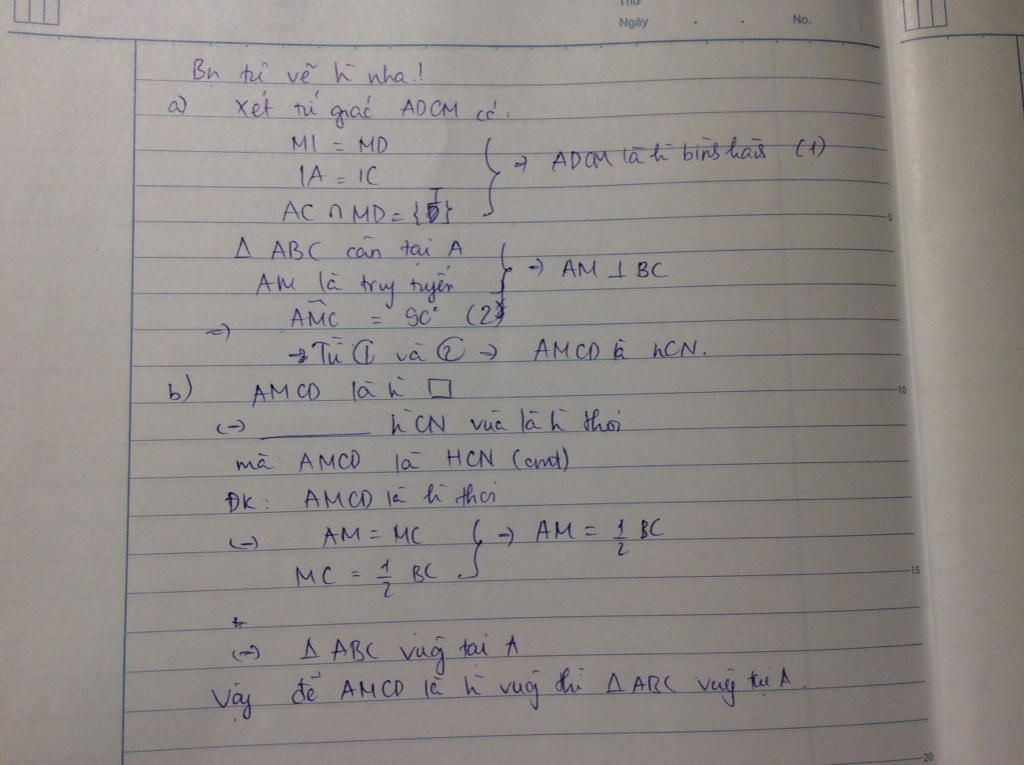 Thứ
Ngày . . No.
Bn tự vẽ h̀ nha!
a) Xét tứ giác ADCM có:
MI = MD
IA = IC
AC ∩ MD = {I}
} → ADCM là h̀ bình hành (1)
Δ ABC cân tại A
AM là truy tuyến
} → AM ⊥ BC
=> AMC = 90° (2)
→ Từ ① và ② → AMCD là hCN.
b) AMCD là h̀ □
(->) ________ hCN vừa là h̀ thoi
mà AMCD là HCN (cmt)
ĐK: AMCD là h̀ thoi
(->) AM = MC
MC = 1/2 BC
} → AM = 1/2 BC
(->) Δ ABC vug tại A
Vậy để AMCD là h̀ vug thì Δ ABC vug tại A.
5
10
15
20